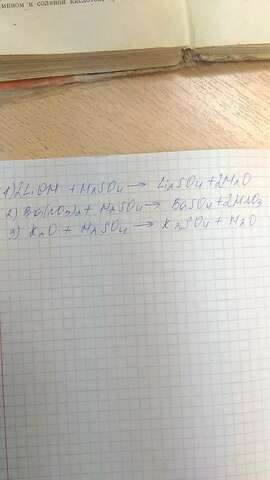 лианом и соляной кислотой,
1) 2LiOH + H₂SO₄ → Li₂SO₄ + 2H₂O
2) Ba(NO₃)₂ + H₂SO₄ → BaSO₄ + 2HNO₃
3) K₂O + H₂SO₄ → K₂SO₄ + H₂O